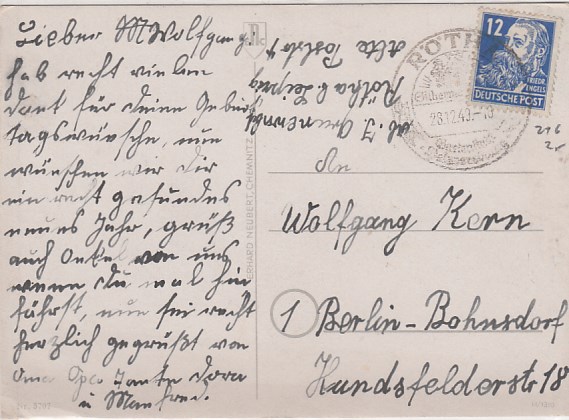 Lieber Wolfgang!
hab recht vielen
Dank für deine Geburts
tagswünsche, nun
wünschen wir dir
ein recht gesundes
neues Jahr, grüß
auch Onkel von uns
wenn du mal hin
fährst, nun sei recht
herzlich gegrüßt von
Oma Opa Tante Dora
u Manfred.
Rötha b. Leipzig
Alte Poststr 4
GERHARD NEUBERT, CHEMNITZ
RÖTHA
28.12.49
12
FRIEDR.
ENGELS
DEUTSCHE POST
216
2,-
An
Wolfgang Kern
1 Berlin-Bohnsdorf
Hundsfelderstr 18